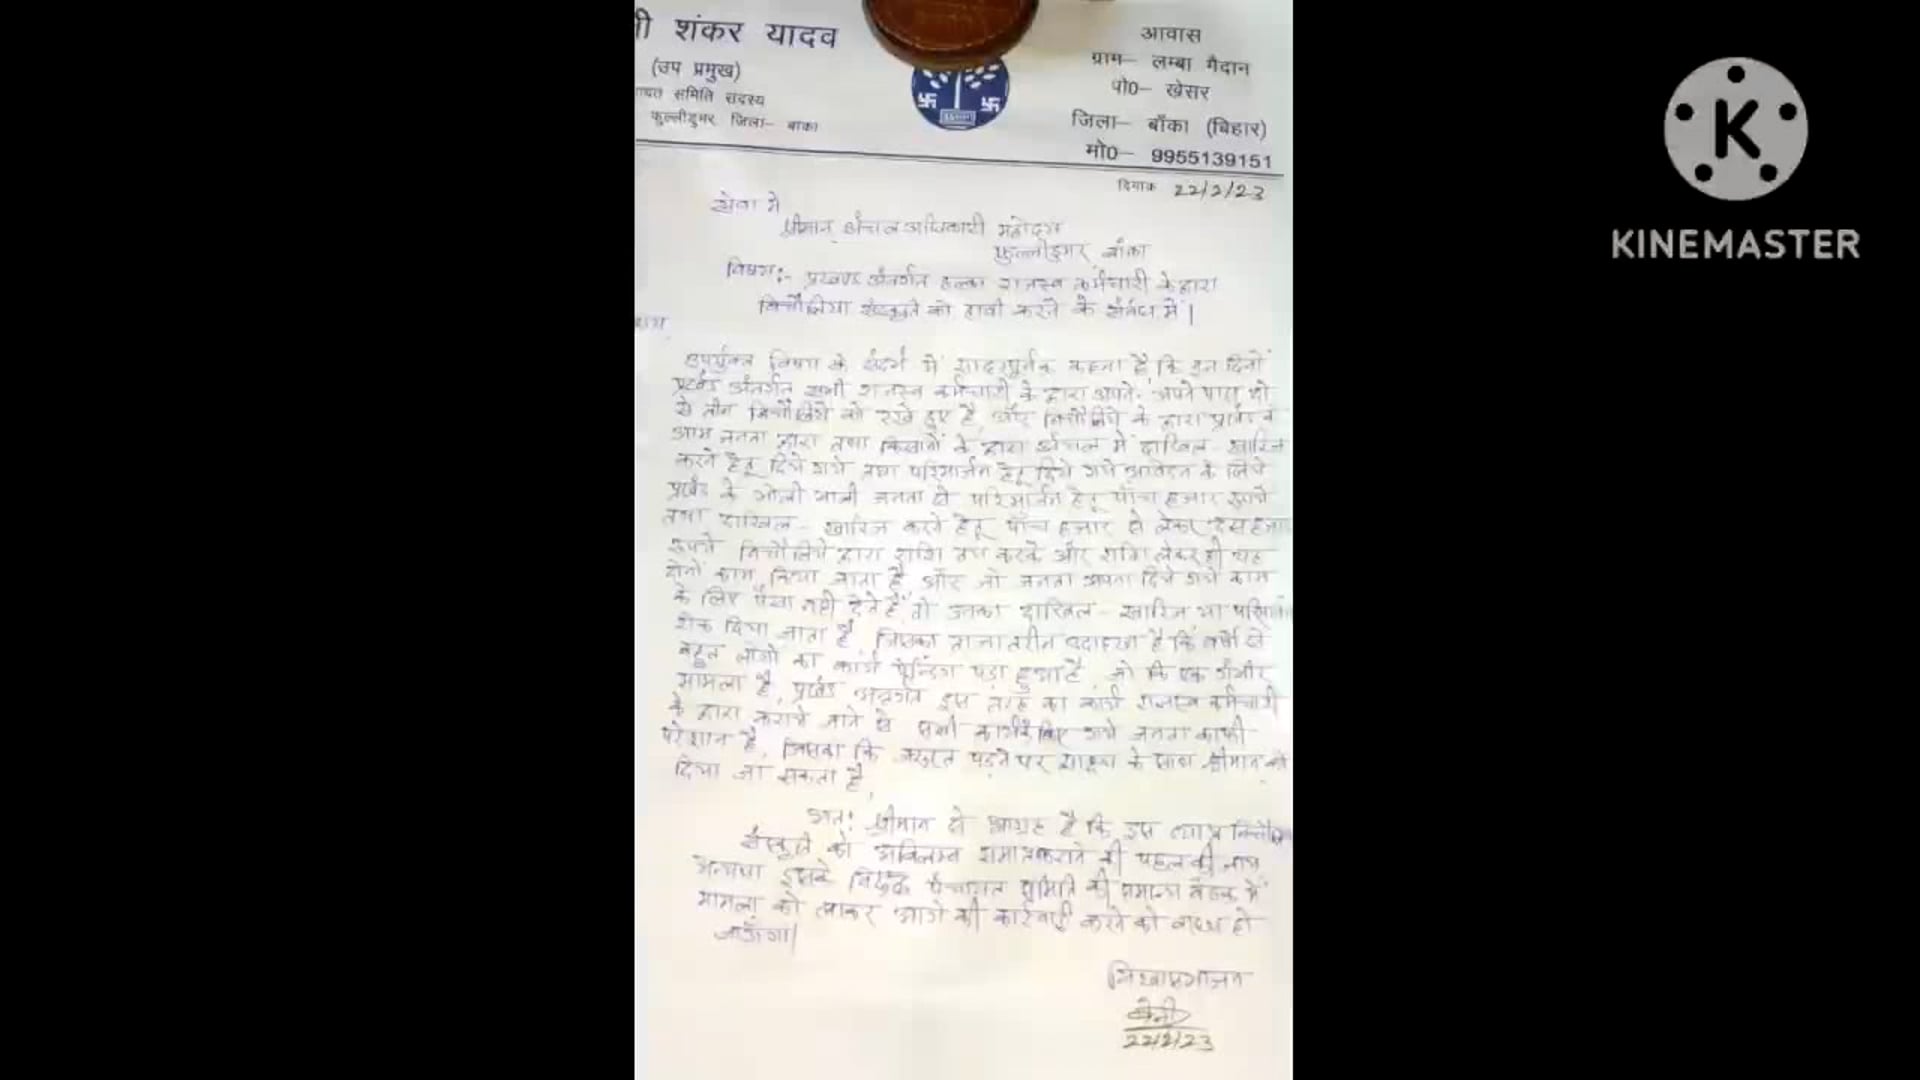 ी शंकर यादव
(उप प्रमुख)
ायत समिति सदस्य
फुल्लीडुमर जिला- बाका
आवास
ग्राम- लम्बा मैदान
पो0- खेसर
जिला- बाँका (बिहार)
मो0- 9955139151
दिनांक 22/2/23
सेवा में
श्रीमान् अंचल अधिकारी महोदय
फुल्लीडुमर, बाँका
विषय:- प्रखण्ड अंतर्गत हल्का राजस्व कर्मचारी के द्वारा
बिचौलिया संस्कृति को हावी करने के संबंध में।
उपर्युक्त विषय के संदर्भ में सादरपूर्वक कहना है कि इन दिनों
प्रखंड अंतर्गत सभी राजस्व कर्मचारी के द्वारा अपने-अपने पास दो
से तीन बिचौलिये को रखे हुए है, और बिचौलिये के द्वारा प्रखंड के
आम जनता द्वारा तथा किसानों के द्वारा अंचल में दाखिल-खारिज
करने हेतू दिये गये तथा परिमार्जन हेतू दिये गये आवेदन के लिये
प्रखंड के भोली भाली जनता से परिमार्जन हेतू पाँच हजार रूपये
तथा दाखिल-खारिज करने हेतू पाँच हजार से लेकर दस हजा
रूपये बिचौलिये द्वारा राशि तय करके और राशि लेकर ही यह
दोनों काम किया जाता है, और जो जनता अपना दिये गये काम
के लिए पैसा नही देते है, तो उनका दाखिल-खारिज या परिमार्जन
रोक दिया जाता है, जिसका ताजा तरीन उदाहरण है कि वर्षो से
बहुत लोगो का कार्य पेन्डिंग पड़ा हुआ है, जो कि एक गंभीर
मामला है, प्रखंड अन्तर्गत इस तरह का कार्य राजस्व कर्मचारी
के द्वारा कराये जाने से सभी गये जनता काफी
परेशान है, जिसका कि जरूरत पड़ने पर साक्ष्य के साथ श्रीमान् को
दिया जा सकता है,
अत: श्रीमान से आग्रह है कि इस व्याप्त
संस्कृति को अविलम्ब समाप्त कराने की पहल की जाय
अन्यथा इसके विरूद्ध पंचायत समिति की बैठक में
मामला को लाकर आगे की कार्रवाई करने को बाध्य हो
जाऊँगा।
22/2/23
KINEMASTER